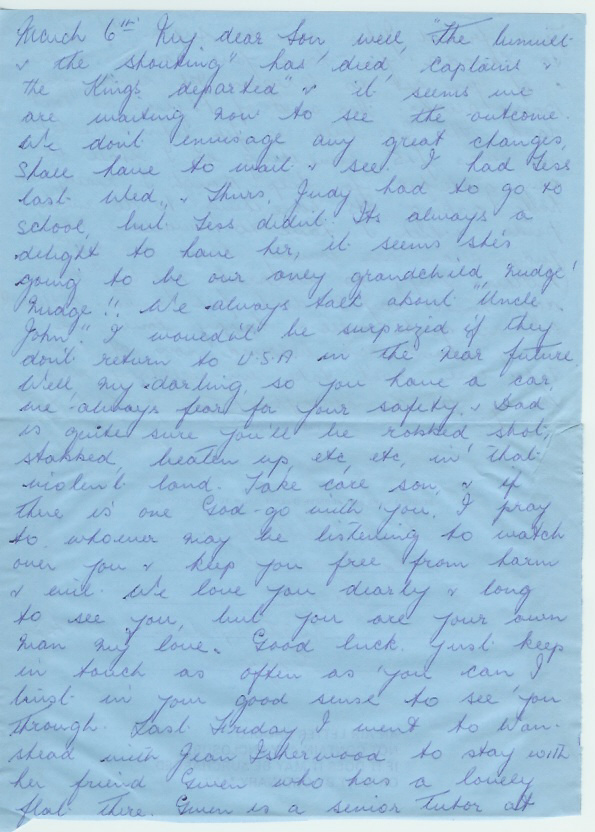 March 6th My dear Son, well, "the tumult
& the shouting" has died, captains &
the Kings departed" & it seems we
are waiting now to see the outcome.
We don't envisage any great changes,
shall have to wait & see. I had Tess
last Wed. & Thurs, Judy had to go to
school, but Tess didn't. Its always a
delight to have her, it seems she's
going to be our only grandchild nudge!
nudge!! We always talk about "Uncle
John". I wouldn't be surprized if they
don't return to U.S.A in the near future.
Well my darling, so you have a car,
we always fear for your safety, & Dad
is quite sure you'll be robbed shot,
stabbed, beaten up etc, etc, in that
violent land. Take care son, & if
there is one God go with you. I pray
to whoever may be listening to watch
over you & keep you free from harm
& evil. We love you dearly & long
to see you, but you are your own
man my love. Good luck. Just keep
in touch as often as you can I
trust in your good sense to see you
through. Last Friday I went to Wan-
stead with Jean Isherwood to stay with
her friend Gwen who has a lovely
flat there. Gwen is a senior tutor at